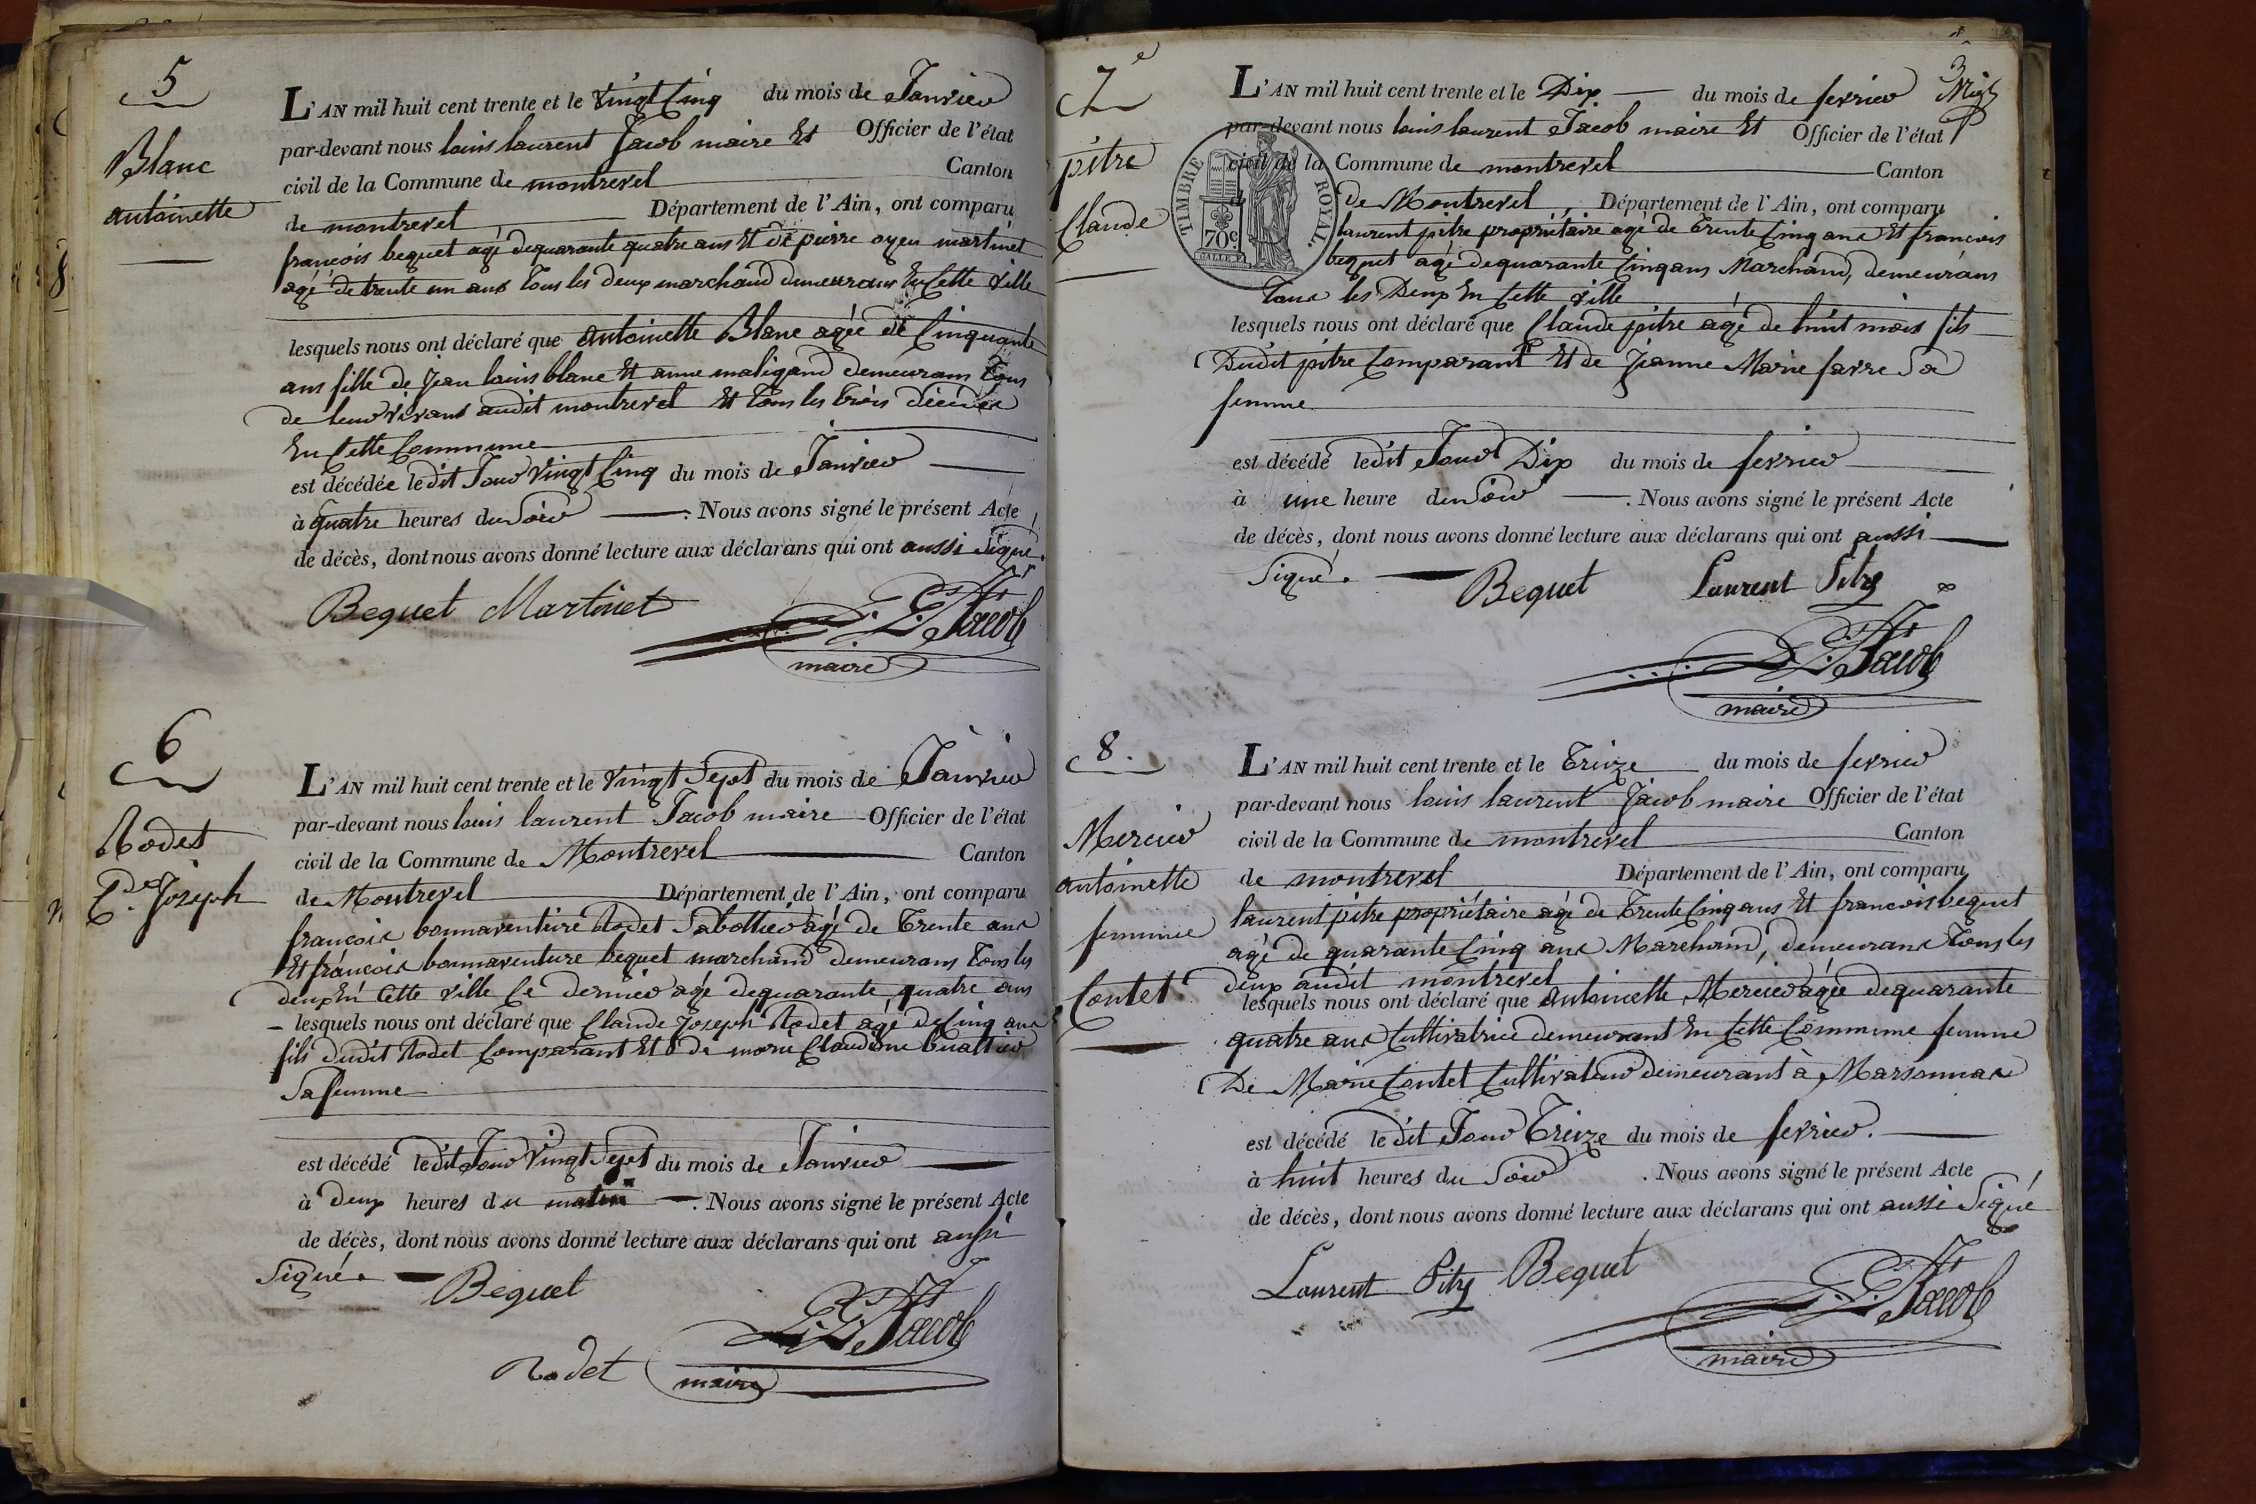 5
Blanc
antoinette
L'AN mil huit cent trente et le vingt Cinq du mois de Janvier
par-devant nous louis laurent Jacob maire Et Officier de l'état
civil de la Commune de montrevel Canton
de montrevel Département de l'Ain, ont comparu
francois bequet agé de quarante quatre ans Et de pierre martinet
agé de trente un ans Tous les deux marchand demeurans En Cette Ville
lesquels nous ont déclaré que antoinette Blanc agée de Cinquante
ans fille de Jean louis blanc Et anne maligand demeurans Tous
de leur vivans audit montrevel Et Tous les trois décédés
En Cette Commune
est décédée ledit Jour vingt Cinq du mois de Janvier
à quatre heures du Soir . Nous avons signé le présent Acte
de décès, dont nous avons donné lecture aux déclarans qui ont aussi Signé.
Bequet Martinet L. L. Jacob
maire
6
Rodet
Cde Joseph
L'AN mil huit cent trente et le vingt Sept du mois de Janvier
par-devant nous louis laurent Jacob maire Officier de l'état
civil de la Commune de Montrevel Canton
de Montrevel Département de l'Ain, ont comparu
francois bonnaventure Rodet Sabottier agé de Trente ans
Et francois bonnaventure bequet marchand demeurans Tous les
deux En Cette ville Ce dernier agé de quarante quatre ans
lesquels nous ont déclaré que Claude Joseph Rodet agé de Cinq ans
fils dudit Rodet Comparant Et de marie Claudine
Sa femme
est décédé ledit Jour Vingt Sept du mois de Janvier
à deux heures du matin . Nous avons signé le présent Acte
de décès, dont nous avons donné lecture aux déclarans qui ont aussi
Signé. Bequet
L. L. Jacob
Rodet maire
7e
pitre
Claude
3
L'AN mil huit cent trente et le Dix du mois de fevrier
par-devant nous louis laurent Jacob maire Et Officier de l'état
civil de la Commune de montrevel Canton
de Montrevel, Département de l'Ain, ont comparu
TIMBRE ROYAL.
70c
laurent pitre propriétaire agé de Trente Cinq ans Et francois
bequet agé de quarante Cinq ans Marchand, demeurans
Tous les Deux En Cette ville
lesquels nous ont déclaré que Claude pitre agé de huit mois fils
Dudit pitre Comparant Et de Jeanne Marie favre Sa
femme
est décédé ledit Jour Dix du mois de fevrier
à une heure du Soir . Nous avons signé le présent Acte
de décès, dont nous avons donné lecture aux déclarans qui ont aussi
Signé. Bequet Laurent Pitre
L. L. Jacob
maire
8.
Mercier
antoinette
femme
Contet
L'AN mil huit cent trente et le Treize du mois de fevrier
par-devant nous louis laurent Jacob maire Officier de l'état
civil de la Commune de montrevel Canton
de montrevel Département de l'Ain, ont comparu
laurent pitre propriétaire agé de Trente Cinq ans Et francois bequet
agé de quarante Cinq ans Marchand, demeurans Tous les
deux audit montrevel
lesquels nous ont déclaré que Antoinette Mercier agée de quarante
quatre ans Cultivatrice demeurant En Cette Commune femme
De Marie Contet Cultivateur demeurant à Marsonnas
est décédé ledit Jour Treize du mois de fevrier.
à huit heures du Soir . Nous avons signé le présent Acte
de décès, dont nous avons donné lecture aux déclarans qui ont aussi Signé
Laurent Pitre Bequet
L. L. Jacob
maire